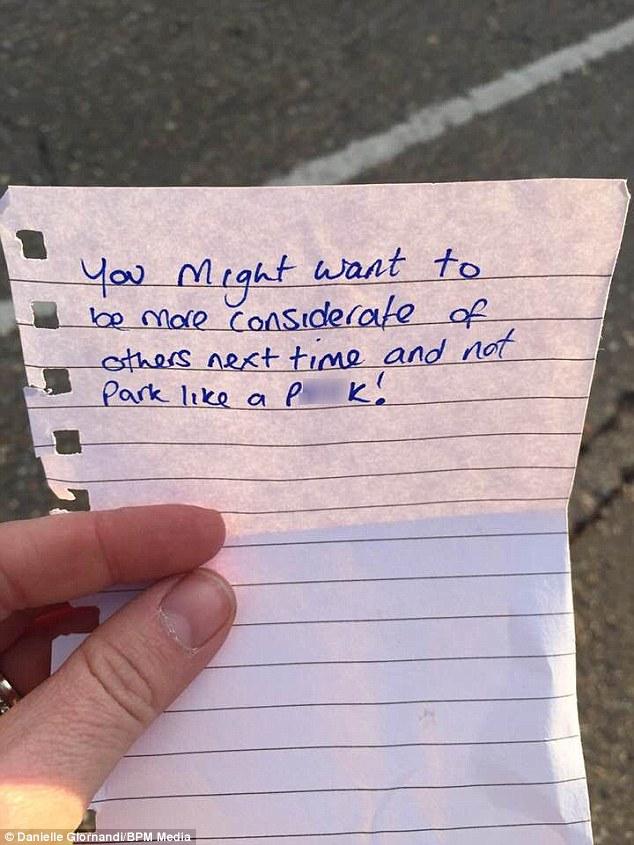 You Might want to
be more considerate of
others next time and not
Park like a P K!
© Danielle Giornandi/BPM Media